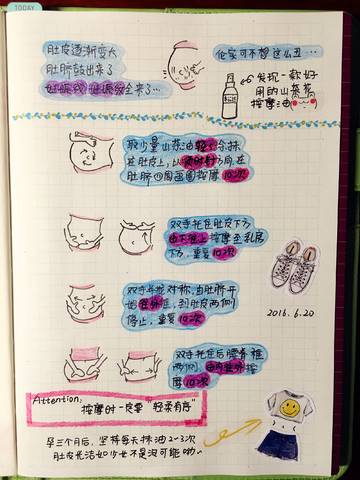 TODAY
肚皮逐渐变大
肚脐鼓出来了
妊娠线 妊娠纹全来了…
伦家可不想这么丑…
发现一款好
用的山茶花
按摩油
取少量山茶油轻轻涂抹
在肚皮上,以顺时针方向,在
肚脐四周画圈按摩10次
双手托在肚皮下方
由下往上按摩至乳房
下方,重复10次
双手手掌对称,由肚脐开
始往外推,到肚皮两侧
停止,重复10次
双手托在后腰脊椎
两侧,由内往外按
摩10次
2016.6.20
Attention:
按摩时一定要“轻柔有序”
孕三个月后,坚持每天抹油2~3次
肚皮光洁如少女不是没可能哟~